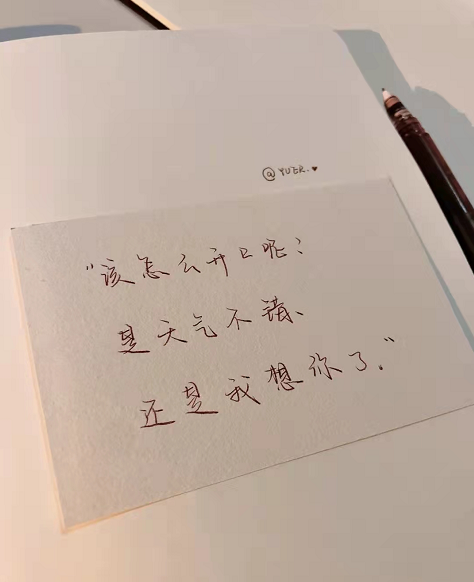 @YUER.♥
“该怎么开口呢？
是天气不错、
还是我想你了。”